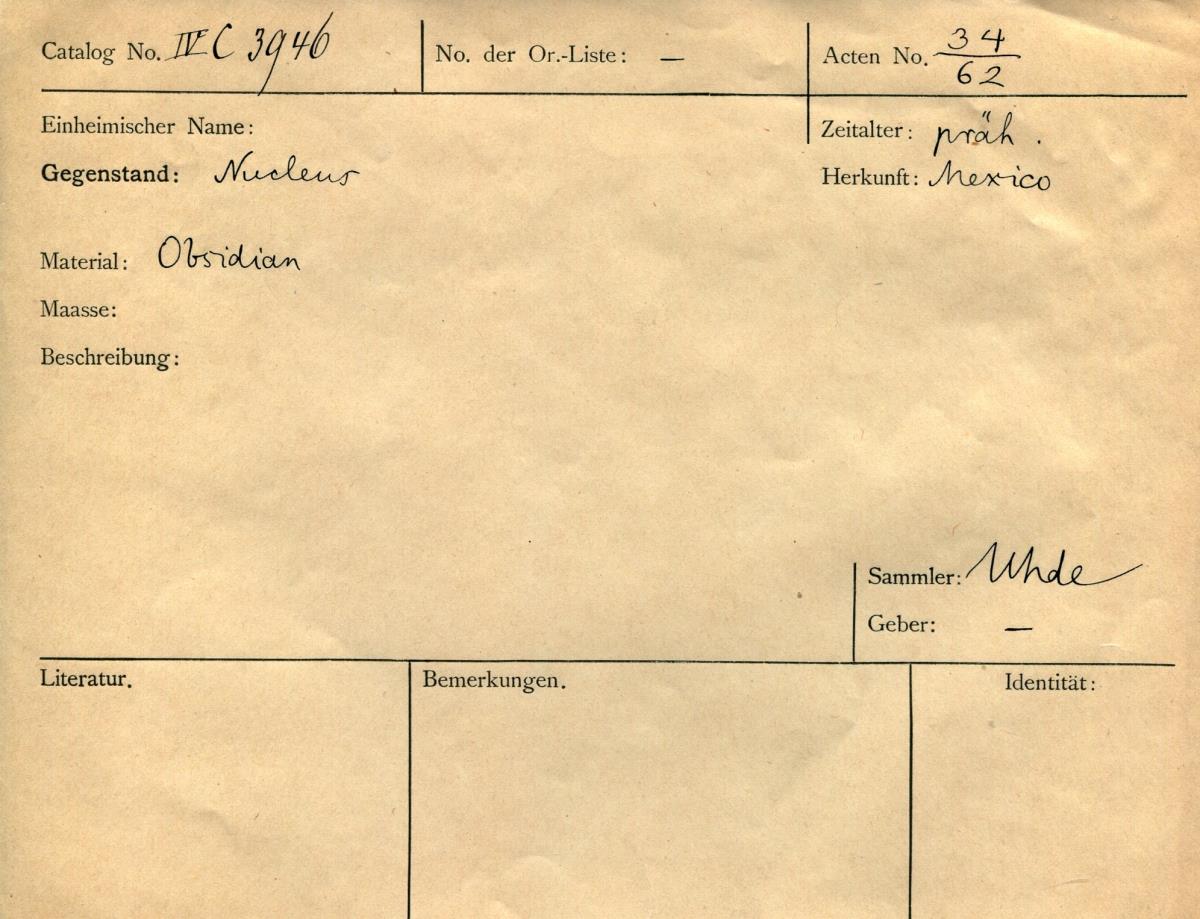 Catalog No. IV C 3946 No. der Or.-Liste: — Acten No. 34/62
Einheimischer Name: Zeitalter: präh.
Gegenstand: Nucleus Herkunft: Mexico
Material: Obsidian
Maasse:
Beschreibung:
Sammler: Uhde
Geber: —
Literatur. Bemerkungen. Identität: